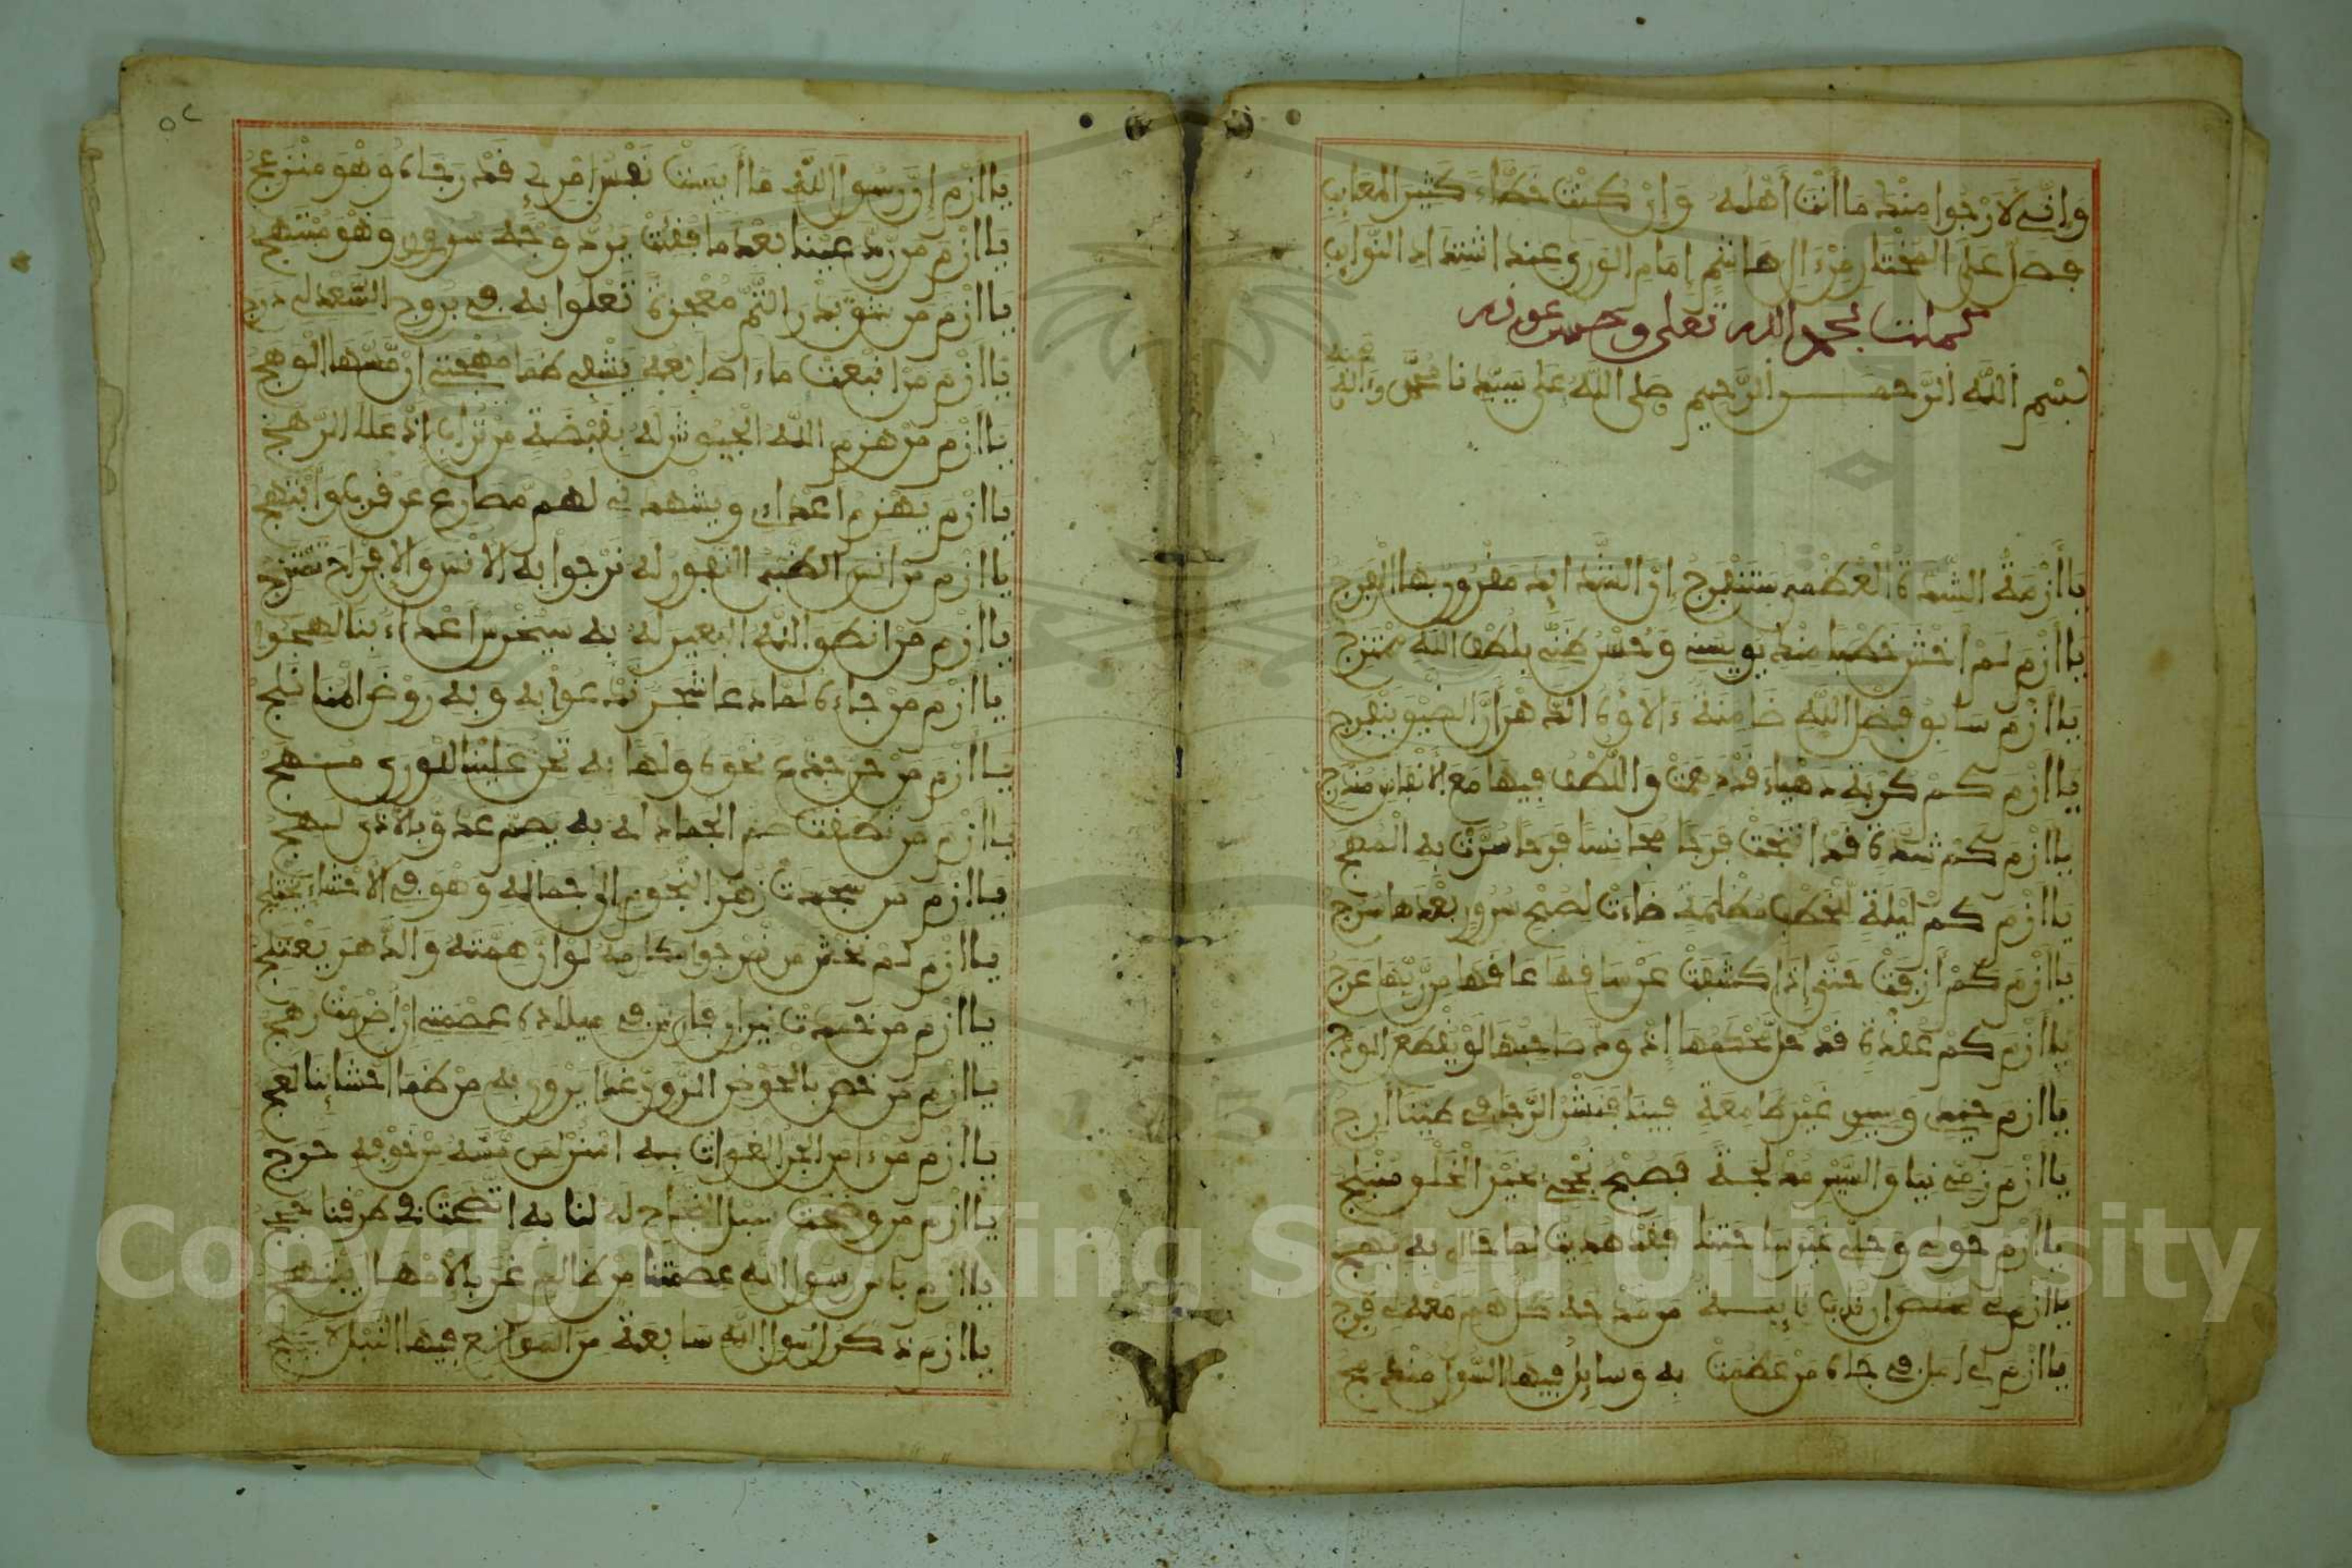 وإني لأرجوا منك ما أنت أهله وإن كنت خطاء كثير المعايب
فصل على المختار من آل هاشم إمام الورى عند اشتداد النوايب
كملت بحمد الله تعلى وحسن عونه
بسم الله الرحمن الرحيم صلى الله على سيدنا محمد وءاله وصحبه
يا أزمة الشدة العظمى ستنفرج إن الشدايد مقرون بها الفرج
يا أزم لم أخش خطبا منك يويسني وحسن ظني بلطف الله ممتزج
يا أزم سابق فضل الله ضامنة ءالاؤه الدهر أن الضيق ينفرج
يا أزم كم كربة دهياء قد دهمت واللطف فيها مع الأنفاس مندرج
يا أزم كم شدة قد أنتجت فرجا مجانسا فرحا سرت به المهج
يا أزم كم ليلة للخطب مظلمة ضاءت لصبح سرور بعدها سرج
يا أزم كم أزفت حتى إذا كشفت عن ساقها عاقها من ريها عرج
يا أزم كم عقدة قد حل محكمها إذ ود صاحبها لو يقطع الودج
يا أزم خيمي وسيري غير طامعة فينا فنشر الرجا في طينا أرج
يا أزم زمي نياق السير مدلجة فصبح نجح بخير الخلق منبلج
يا أزم حولي وحلي غير ساحتنا فقد
يا أزم
يا أزم لي أمل في جاه من عظمت به وسايل فيها السول منك
٥٢
يا أزم إن رسول الله ما أيست نفس امرئ قد رجاه وهو منزعج
يا أزم من رد عينا بعد ما فقئت يرد وجه سرور وهو مبتهج
يا أزم من شق بدر التم معجزة تعلوا به في بروج السعد لي درج
يا أزم من انبعت ماء أصابعه يشفي ظما مهجتي إن مسها الوهج
يا أزم من هزم الله الجيوش له بقبضة من تراب إذ علا الرهج
يا أزم يهزم أعدائي ويشهدني لهم مصارع عن قرب وأبتهج
يا أزم من أنس الظبي النفور له نرجوا به الأنس والأفراح تمتزج
يا أزم من أنطق الله البعير له به سيخرس أعداء بنا لهجوا
يا أزم من جاءه لما دعا شجر ندعوا به وبه روض المنا نلج
يا أزم من حن جذع نحوه ولها به تحن علينا للورى مهج
يا أزم من نطقت صم الجماد له به يصم عدو بالأذى لهج
يا أزم من سجدت زهر النجوم إلى جماله وهو في الأحشاء
يا أزم لم نخش من نرجوا مكارمه لو أن همته والدهر يعتلج
يا أزم من خمدت نيران فارس في ميلاده عصمتي إن أضرمت رهج
يا أزم من خص بالحوض الروي غدا يروي به من ظما أحشائنا لعج
يا أزم من ءامن الجزل الغزالة به امنن لمن مسه من خوفه حرج
يا أزم من وضحت سبل النجاح له لنا به اتضحت في طرقنا
يا أزم باس رسول الله عصمتنا من ظالم غر بالإمهال
يا أزم ذكر رسول الله سابغة من الموانع فيها النبل لا